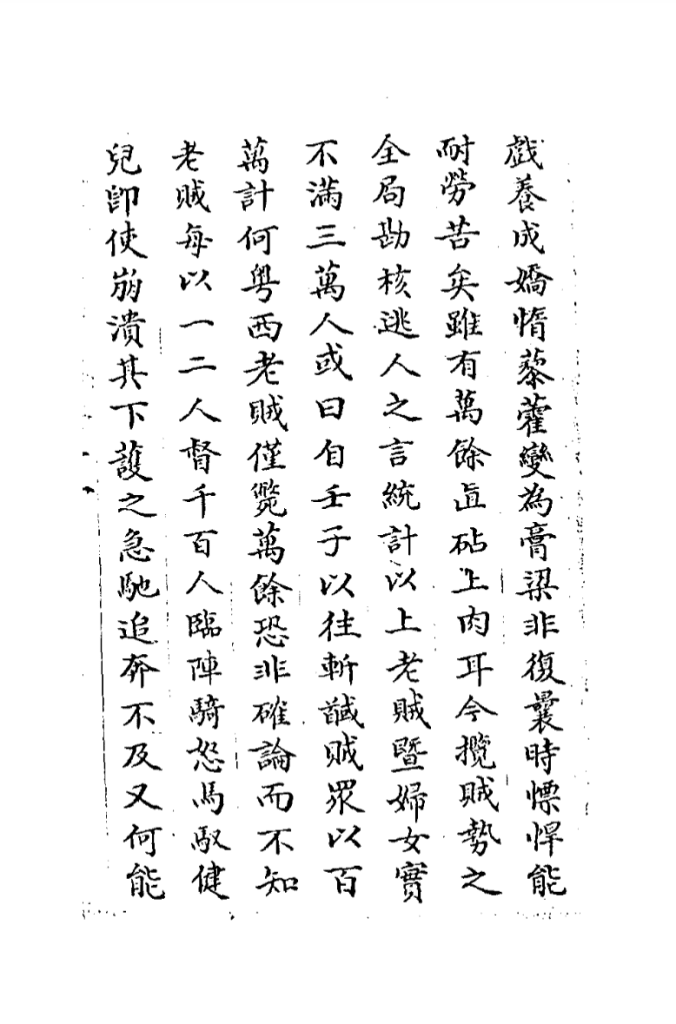 戲養成嬌惰藜藿變為膏粱非復曩時慓悍能
耐勞苦矣雖有萬餘直砧上肉耳今攬賊勢之
全局勘核逃人之言統計以上老賊暨婦女實
不滿三萬人或曰自壬子以往斬馘賊眾以百
萬計何粵西老賊僅斃萬餘恐非確論而不知
老賊每以一二人督千百人臨陣騎怒馬馭健
兒即使崩潰其下護之急馳追奔不及又何能